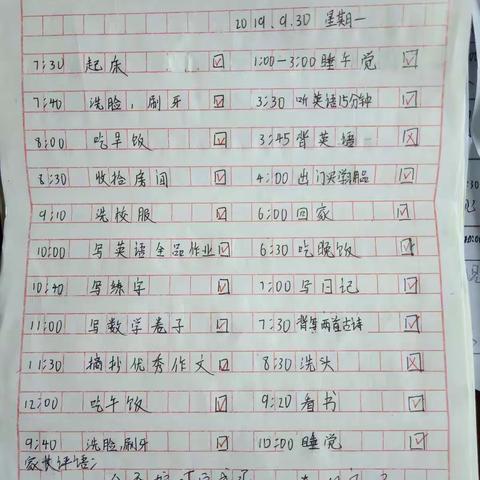 2019.9.30 星期一
7:30 起床 ☑ 1:00-3:00 睡午觉 ☑
7:40 洗脸,刷牙 ☑ 3:30 听英语15分钟 ☑
8:00 吃早饭 ☑ 3:45 背英语 ☒
8:30 收捡房间 ☑ 4:00 出门买学用品 ☑
9:10 洗校服 ☑ 6:00 回家 ☑
10:00 写英语全品作业 ☑ 6:30 吃晚饭 ☑
10:40 写练字 ☑ 7:00 写日记 ☑
11:00 写数学卷子 ☑ 7:30 背写两首古诗 ☑
11:30 摘抄优秀作文 ☑ 8:30 洗头 ☒
12:00 吃午饭 ☑ 9:20 看书 ☑
9:40 洗脸,刷牙 ☑ 10:00 睡觉 ☑
家长评语: